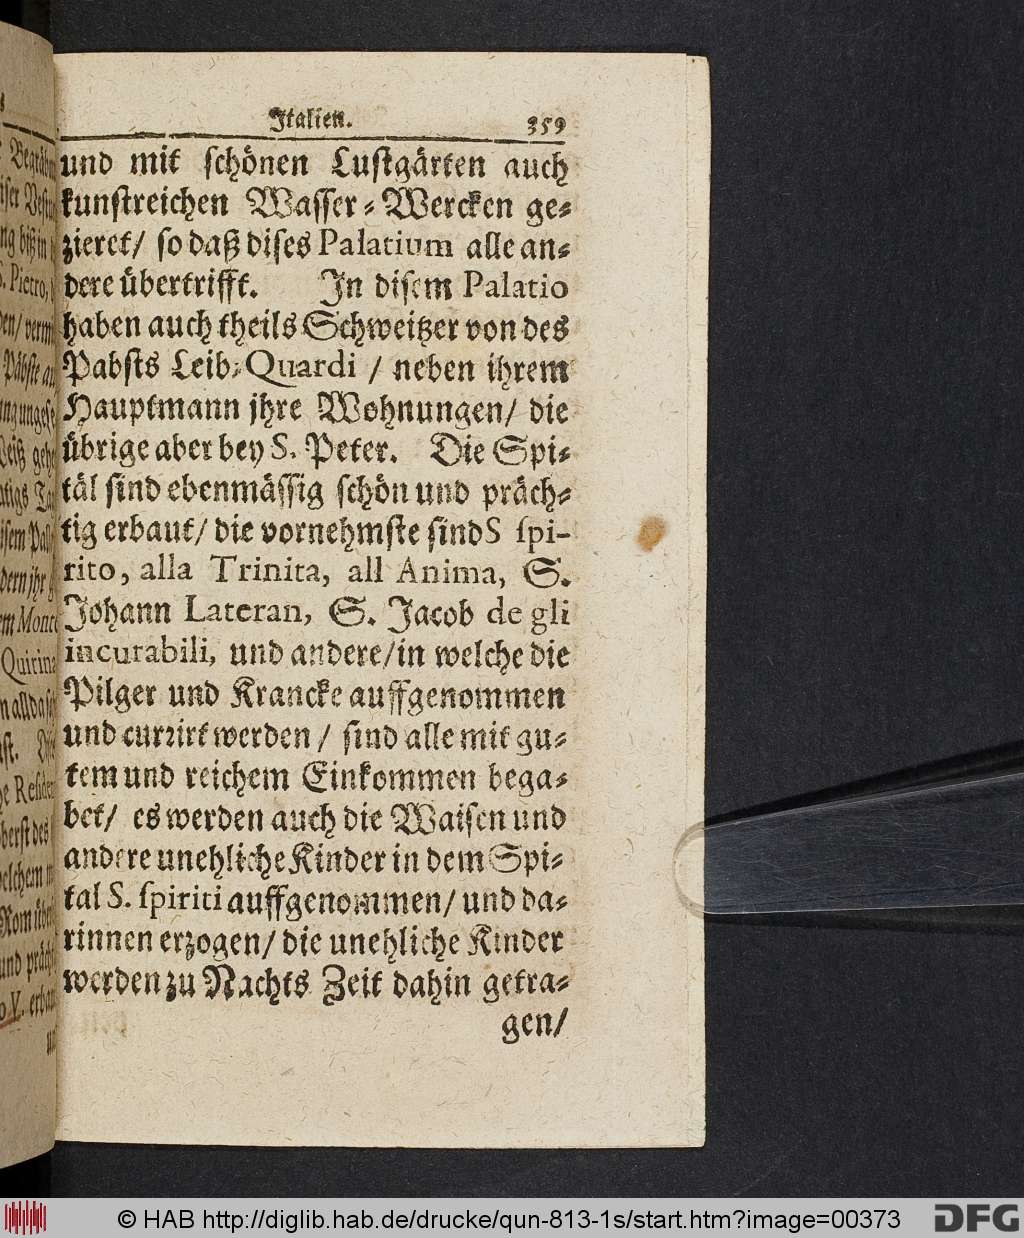 Italien. 359
und mit schönen Lustgärten auch
kunstreichen Wasser-Wercken ge-
zieret/ so daß dises Palatium alle an-
dere übertrifft. In disem Palatio
haben auch theils Schweitzer von des
Pabsts Leib-Quardi / neben ihrem
Hauptmann jhre Wohnungen/ die
übrige aber bey S. Peter. Die Spi-
täl sind ebenmässig schön und präch-
tig erbaut/ die vornehmste sind S spi-
rito, alla Trinita, all Anima, S.
Johann Lateran, S. Jacob de gli
incurabili, und andere/ in welche die
Pilger und Krancke auffgenommen
und currirt werden / sind alle mit gu-
tem und reichem Einkommen bega-
bet/ es werden auch die Waisen und
andere unehliche Kinder in dem Spi-
tal S. spiriti auffgenommen/ und da-
rinnen erzogen/ die unehliche Kinder
werden zu Nachts Zeit dahin getra-
gen/
© HAB http://diglib.hab.de/drucke/qun-813-1s/start.htm?image=00373
DFG